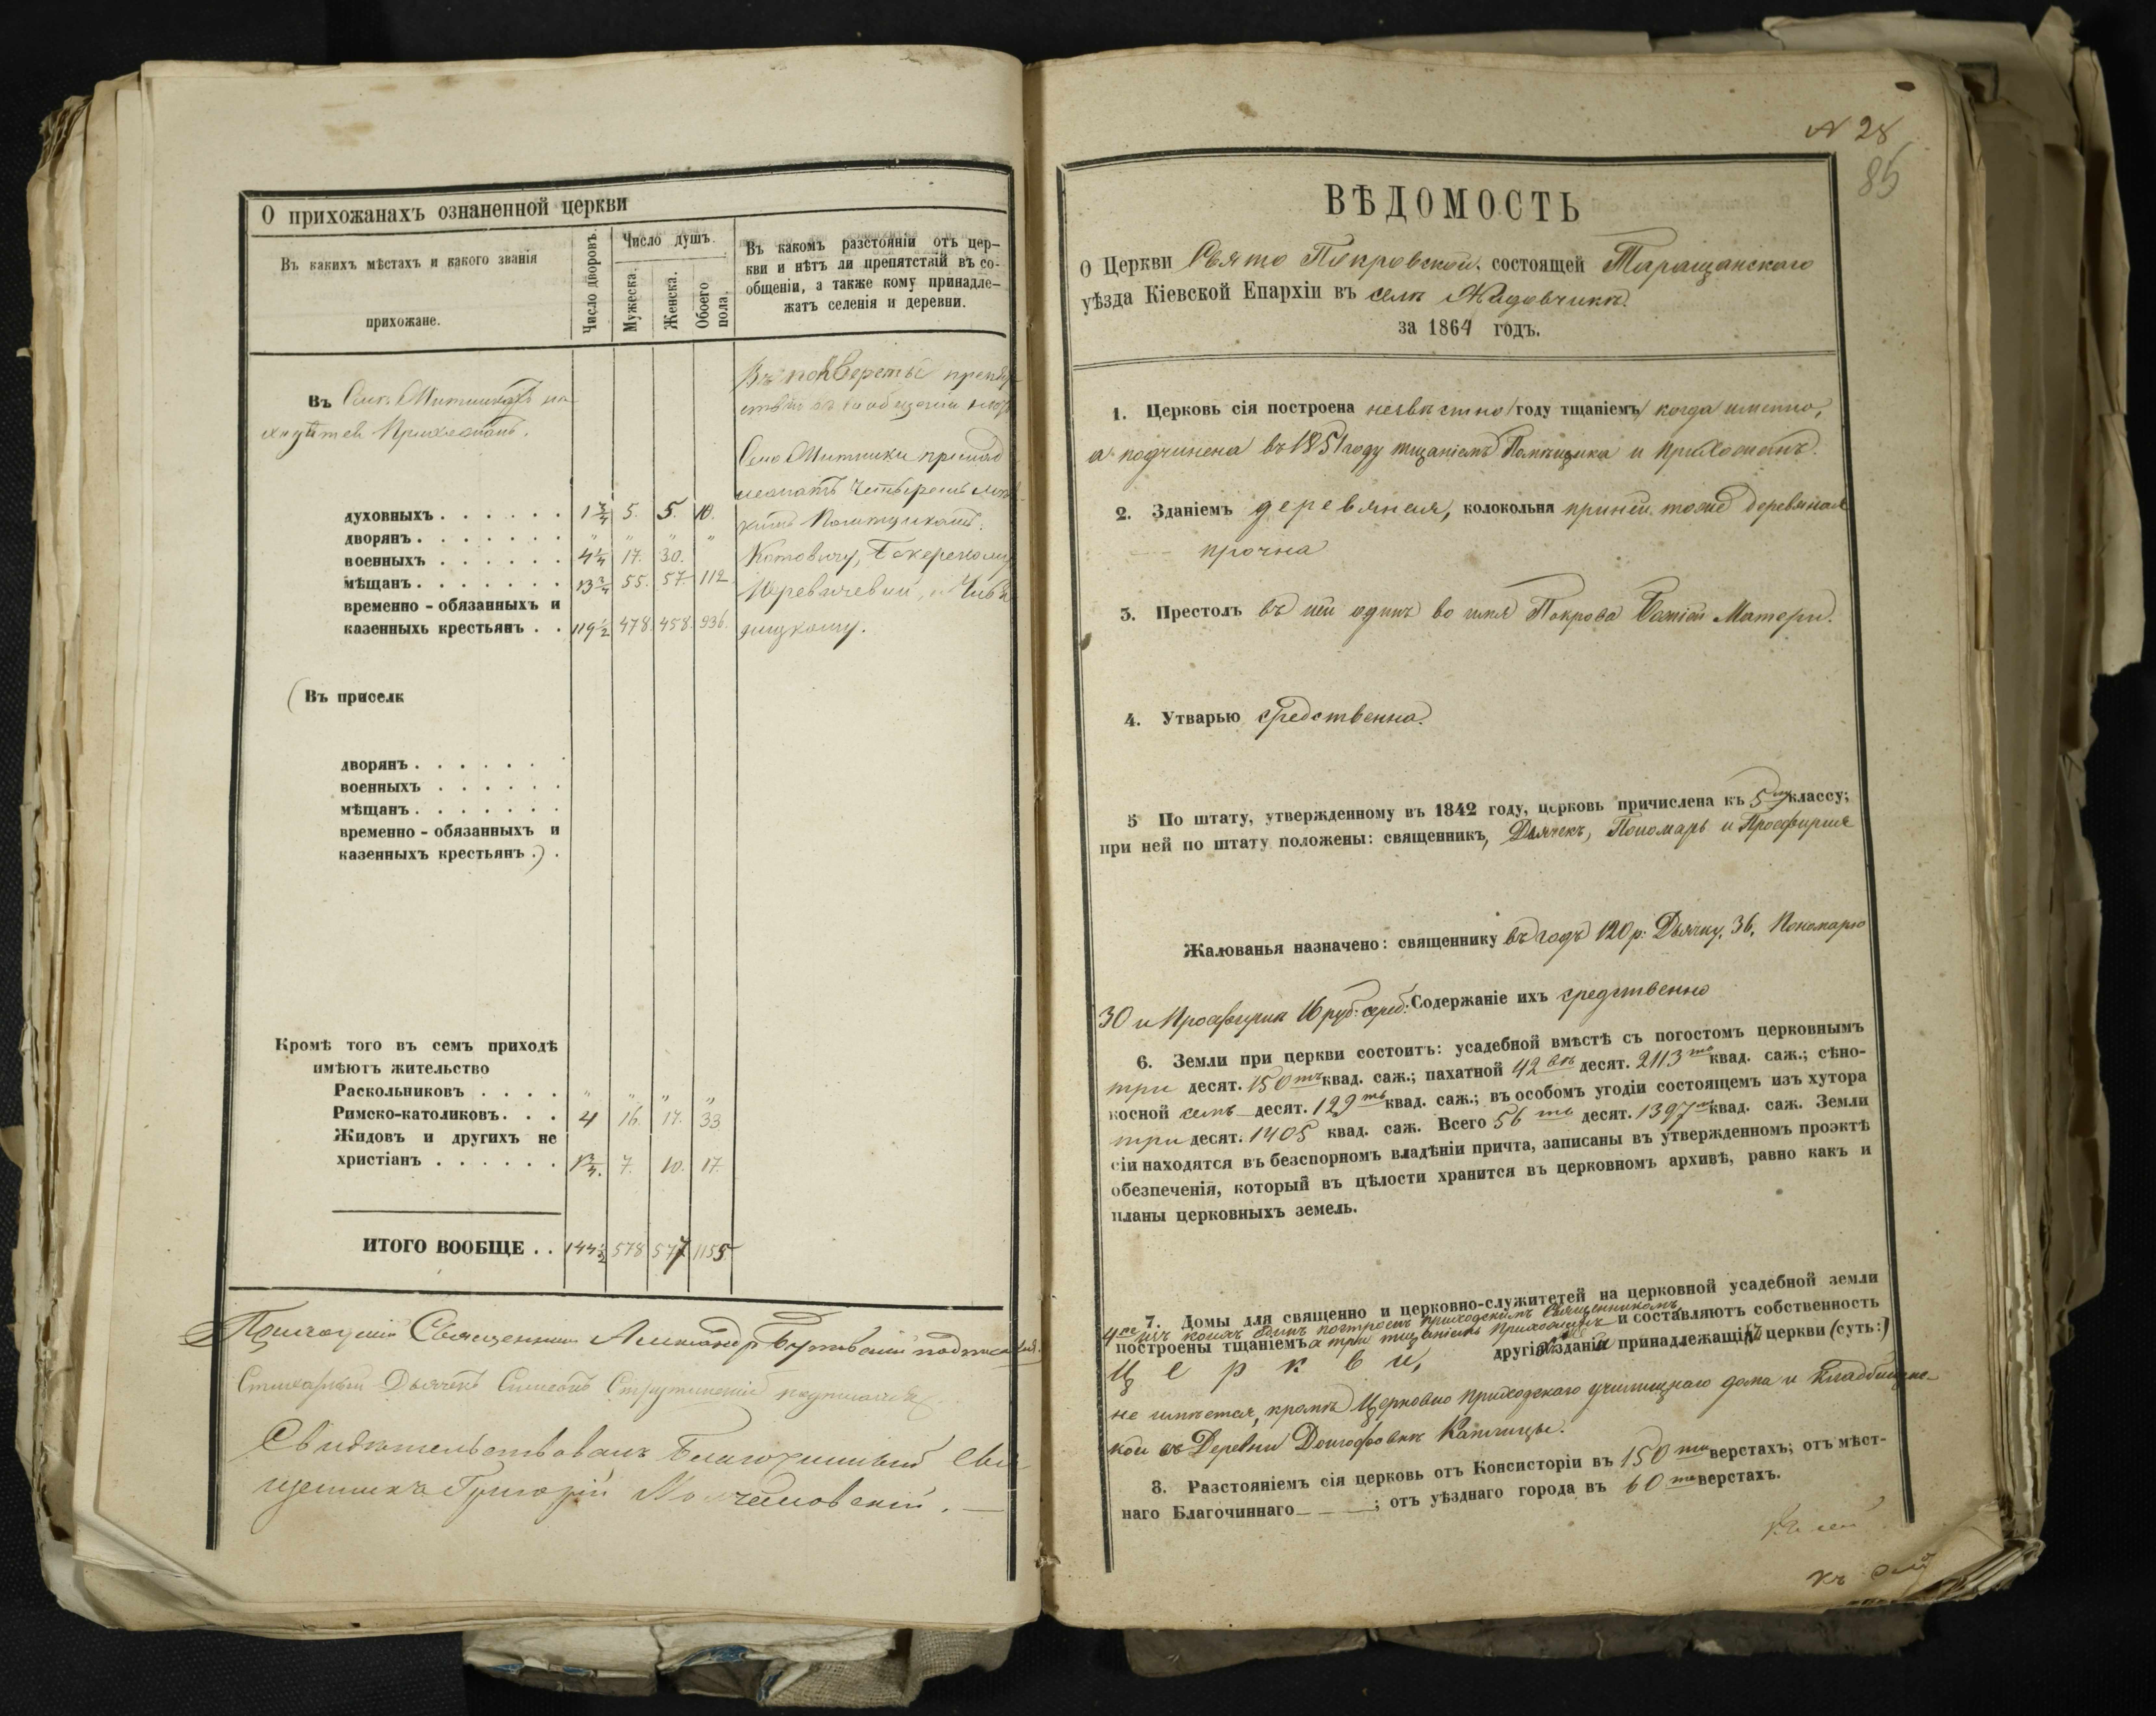 О прихожанахъ ознаненной церкви
Въ каких мѣстахъ и какого званія
прихожане.
Число дворовъ.
Число душъ.
Мужеска.
Женска.
Обоего пола.
Въ какомъ разстояніи отъ цер-
кви и нѣтъ ли препятствій въ со-
общеніи, а также кому принадле-
жатъ селенія и деревни.
Въ
духовныхъ . . . . . . 1 3/4 5. 5. 10.
дворянъ . . . . . . . " " " "
военныхъ . . . . . . 4 1/4 17. 30.
мѣщанъ . . . . . . . 13 3/4 55. 57. 112.
временно - обязанныхъ и
казенныхъ крестьянъ . . 119 1/2 478. 458. 936.
Село Митники
Четыремъ
(Въ приселк
дворянъ . . . . . . .
военныхъ . . . . . .
мѣщанъ . . . . . . .
временно - обязанныхъ и
казенныхъ крестьянъ . ) .
Кромѣ того въ семъ приходѣ
имѣютъ жительство
Раскольниковъ . . . . " " " "
Римско-католиковъ . . . 4 16. 17. 33
Жидовъ и другихъ не
христіанъ . . . . . . 1 3/4. 7. 10. 17.
ИТОГО ВООБЩЕ . . 144 1/2 578 577 1155
Священник Александр подписался.
Стихарный Дьячекъ Симеонъ подписался.
Свидѣтельствовалъ Благочинный Свя-
щенникъ Григорій
N 28
85
ВѢДОМОСТЬ
О Церкви Свято Покровской, состоящей Таращанскаго
уѣзда Кіевской Епархіи въ селѣ Жидовчикѣ.
за 1864 годъ.
1. Церковь сія построена неизвѣстно году тщаніемъ когда именно,
а подчинена въ 1851 году тщаніемъ Помѣщика и прихожанъ.
2. Зданіемъ деревяная, колокольня при ней тоже деревяная
прочна
3. Престолъ въ ней одинъ во имя Покрова Божіей Матери.
4. Утварью средственна.
5 По штату, утвержденному въ 1842 году, церковь причислена къ 5му классу;
при ней по штату положены: священникъ, Дьячекъ, Пономарь и Просфирня
Жалованья назначено: священнику въ годъ 120 р: Дьячку, 36, Пономарю
30 и Просфирни 16 руб: сереб: Содержаніе ихъ средственно
6. Земли при церкви состоитъ: усадебной вмѣстѣ съ погостомъ церковнымъ
три десят. 150ть квад. саж.; пахатной 42 двѣ десят. 2113ть квад. саж.; сѣно-
косной семь десят. 129ть квад. саж.; въ особомъ угодіи состоящемъ изъ хутора
три десят. 1405 квад. саж. Всего 56 ть десят. 1397ть квад. саж. Земли
сіи находятся въ безспорномъ владѣніи причта, записаны въ утвержденномъ проэктѣ
обезпеченія, который въ цѣлости хранится въ церковномъ архивѣ, равно какъ и
планы церковныхъ земель.
7. Домы для священно и церковно-служитетей на церковной усадебной земли
4ре изъ коихъ одинъ построенъ приходскимъ Священникомъ,
построены тщаніемъ а три тщаніемъ прихожанъ и составляютъ собственность
Церкви, другія зданія принадлежащія церкви (суть:)
не имѣется, кромѣ Церковно приходскаго училищнаго дома и Кладбищен-
кой въ Деревни Каплицы.
8. Разстояніемъ сія церковь отъ Консисторіи въ 150ти верстахъ; отъ мѣст-
наго Благочиннаго — — —; отъ уѣзднаго города въ 60ти верстахъ.